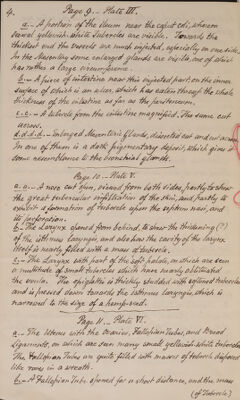 4. Page 9. - Plate III.
a. - A portion of the ileum near the caput coli, whereon
small yellowish-white tubercles are visible. Towards the
thickest end the vessels are much injected, especially on one side.
In the Mesentery some enlarged glands are visible, one of which
has rather a large circumference.
b. - A piece of intestine near this injected part, on the inner
surface of which is an ulcer, which has eaten through the whole
thickness of the intestine as far as the peritoneum.
c.c. - A tubercle from the intestine magnified. The same cut
across.
d.d.d.d. - Enlarged Mesenteric glands, dissected out and cut across.
In one of them is a dark pigmentary deposit, which gives it
some resemblance to the bronchial glands.
Page 10. - Plate V.
a.a. - A nose cut open, viewed from both sides, partly to show
the great tubercular infiltration of the skin, and partly to
exhibit a formation of tubercle upon the septum nasi, and
its perforation.
b. - The Larynx opened from behind, to show the thickening (?)
of the isthmus laryngis, and also how the cavity of the larynx
itself is nearly filled with a mass of tubercle.
c. - The Larynx with part of the soft palate, on which are seen
a multitude of small tubercles which have nearly obliterated
the uvula. The epiglottis is thickly studded with softened tubercles
and is forced down towards the isthmus laryngis, which is
narrowed to the size of a hempseed.
Page 11. - Plate VI.
a. - The Uterus with the Ovaries, Fallopian Tubes, and Broad
Ligaments, on which are seen many small yellowish white tubercles.
The Fallopian Tubes are quite filled with masses of tubercle disposed
like rows in a wreath.
b. - A Fallopian Tube opened for a short distance, and the mass
(of tubercle)